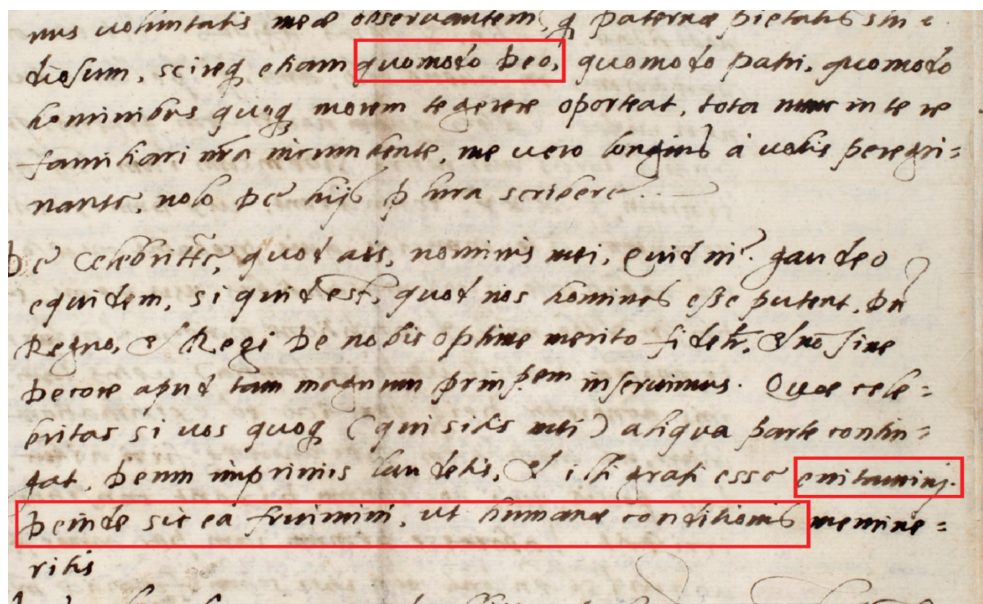 nus voluntatis meæ observantem, q̃ paternæ pietatis stu =
diosum, scireq̃ etiam quomodo Deo, quomodo patri, quomodo
hominibus quoq̃ morem te gerere oporteat, tota nunc in te re
familiari nr̃a incumbente, me vero longius à vobis peregri=
nante, nolo De hijs plura scribere.
De Celebritate, quod ais, nominis mei, Quid ni? gaudeo
equidem, si quid est, quod nos homines esse putent, Dum
Regno, & Regi De nobis optime merito fideliter, & nõ sine
Decore apud tam magnum prinpem inservimus. Quæ cele=
britas si vos quoq̃ (qui sitis mei) aliqua parte contin=
gat, Deum imprimis laudetis, & illi grati esse enitamini.
Deinde sic eâ fruimini, ut humanæ conditionis memine=
ritis